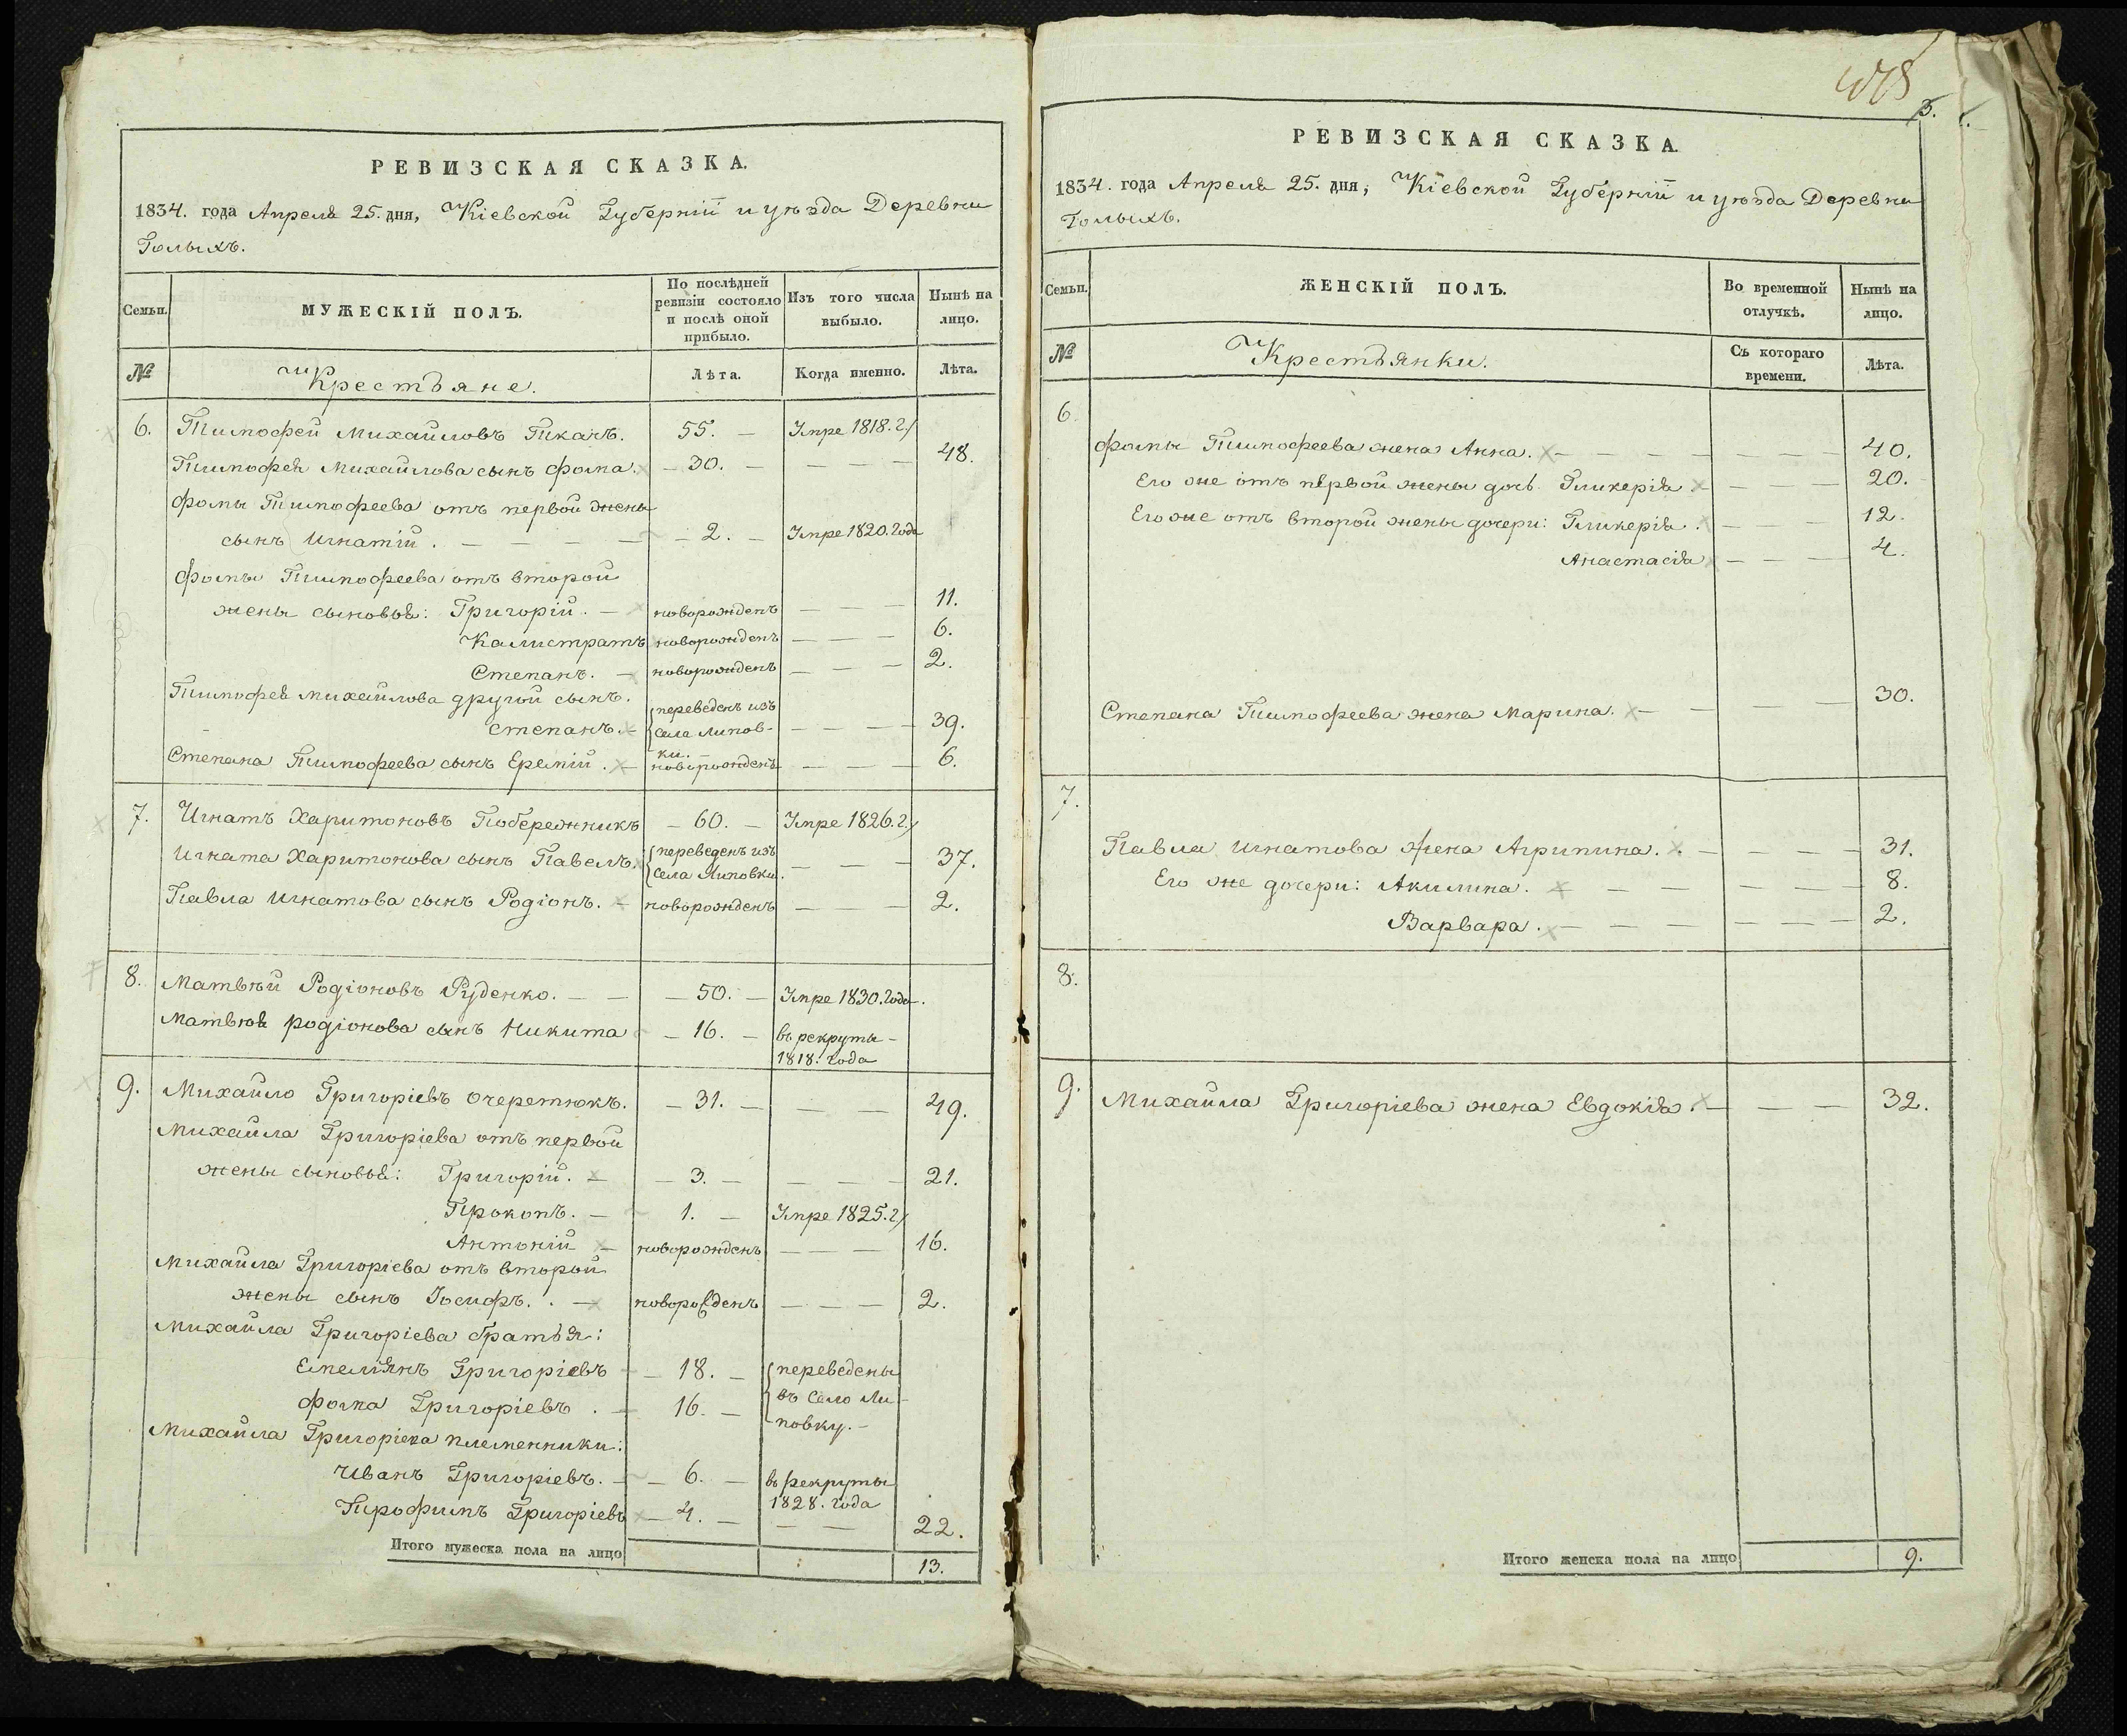 РЕВИЗСКАЯ СКАЗКА.
1834. года Апреля 25. дня, Кіевской Губерніи и уѣзда Деревни
Голыхъ.
Семьи.
МУЖЕСКІЙ ПОЛЪ.
По послѣдней ревизіи состояло и послѣ оной прибыло.
Изъ того числа выбыло.
Нынѣ на лицо.
№
Крестьяне.
Лѣта.
Когда именно.
Лѣта.
6. Тимофей Михайловъ Ткачъ. 55. — Умре 1818. г.
Тимофея Михайлова сынъ Фома. — 30. — — — — 48.
Фомы Тимофеева отъ первой жены
сынъ Игнатій. — — — — — 2. — Умре 1820. года
Фомы Тимофеева отъ второй
жены сыновья: Григорій. — новорожденъ — — 11.
Калистратъ новорожденъ — — — 6.
Степанъ. — новорожденъ — — — 2.
Тимофея Михайлова другой сынъ.
Степанъ. — переведенъ изъ села Липовки. — — — — 39.
Степана Тимофеева сынъ Еремій. — новорожденъ — — — 6.
7. Игнатъ Харитоновъ Побережникъ — 60. — Умре 1826. г.
Игната Харитонова сынъ Павелъ. переведенъ изъ села Липовки. — — — 37.
Павла Игнатова сынъ Родіонъ. — новорожденъ — — — 2.
8. Матвѣй Родіоновъ Руденко. — — — 50. — Умре 1830. года.
Матвѣя Родіонова сынъ Никита — 16. — въ рекруты 1818. года
9. Михайло Григоріевъ Очеретюкъ. — 31. — — — — 49.
Михайла Григоріева отъ первой
жены сыновья: Григорій. — — 3. — — — — 21.
Прокопъ. — 1. — Умре 1825. г.
Антоній — новорожденъ — — — 16.
Михайла Григоріева отъ второй
жены сынъ Іосифъ. . — новорожденъ — — — 2.
Михайла Григоріева братья:
Емельянъ Григоріевъ — 18. — переведены
Фома Григоріевъ . — 16. — въ село Липовку. —
Михайла Григоріева племенники:
Иванъ Григоріевъ. — — 6. — въ рекруты 1828. года
Трофимъ Григоріевъ — 4. — — — 22.
Итого мужеска пола на лицо 13.
5.
РЕВИЗСКАЯ СКАЗКА.
1834. года Апреля 25. дня, Кіевской Губерніи и уѣзда Деревни
Голыхъ.
Семьи.
ЖЕНСКІЙ ПОЛЪ.
Во временной отлучкѣ.
Нынѣ на лицо.
№
Крестьянки.
Съ котораго времени.
Лѣта.
6.
Фомы Тимофеева жена Анна. — — — — — — — 40.
Его же отъ первой жены дочь Гликерія. — — — — 20.
Его же отъ второй жены дочери: Гликерія. — — 12.
Анастасія — — — 4.
Степана Тимофеева жена Марина. — — — — 30.
7.
Павла Игнатова жена Агрипина. — — — — 31.
Его же дочери: Акилина. — — — — — — 8.
Варвара. — — — — — — 2.
8.
9. Михайла Григоріева жена Евдокія. — — — 32.
Итого женска пола на лицо 9.